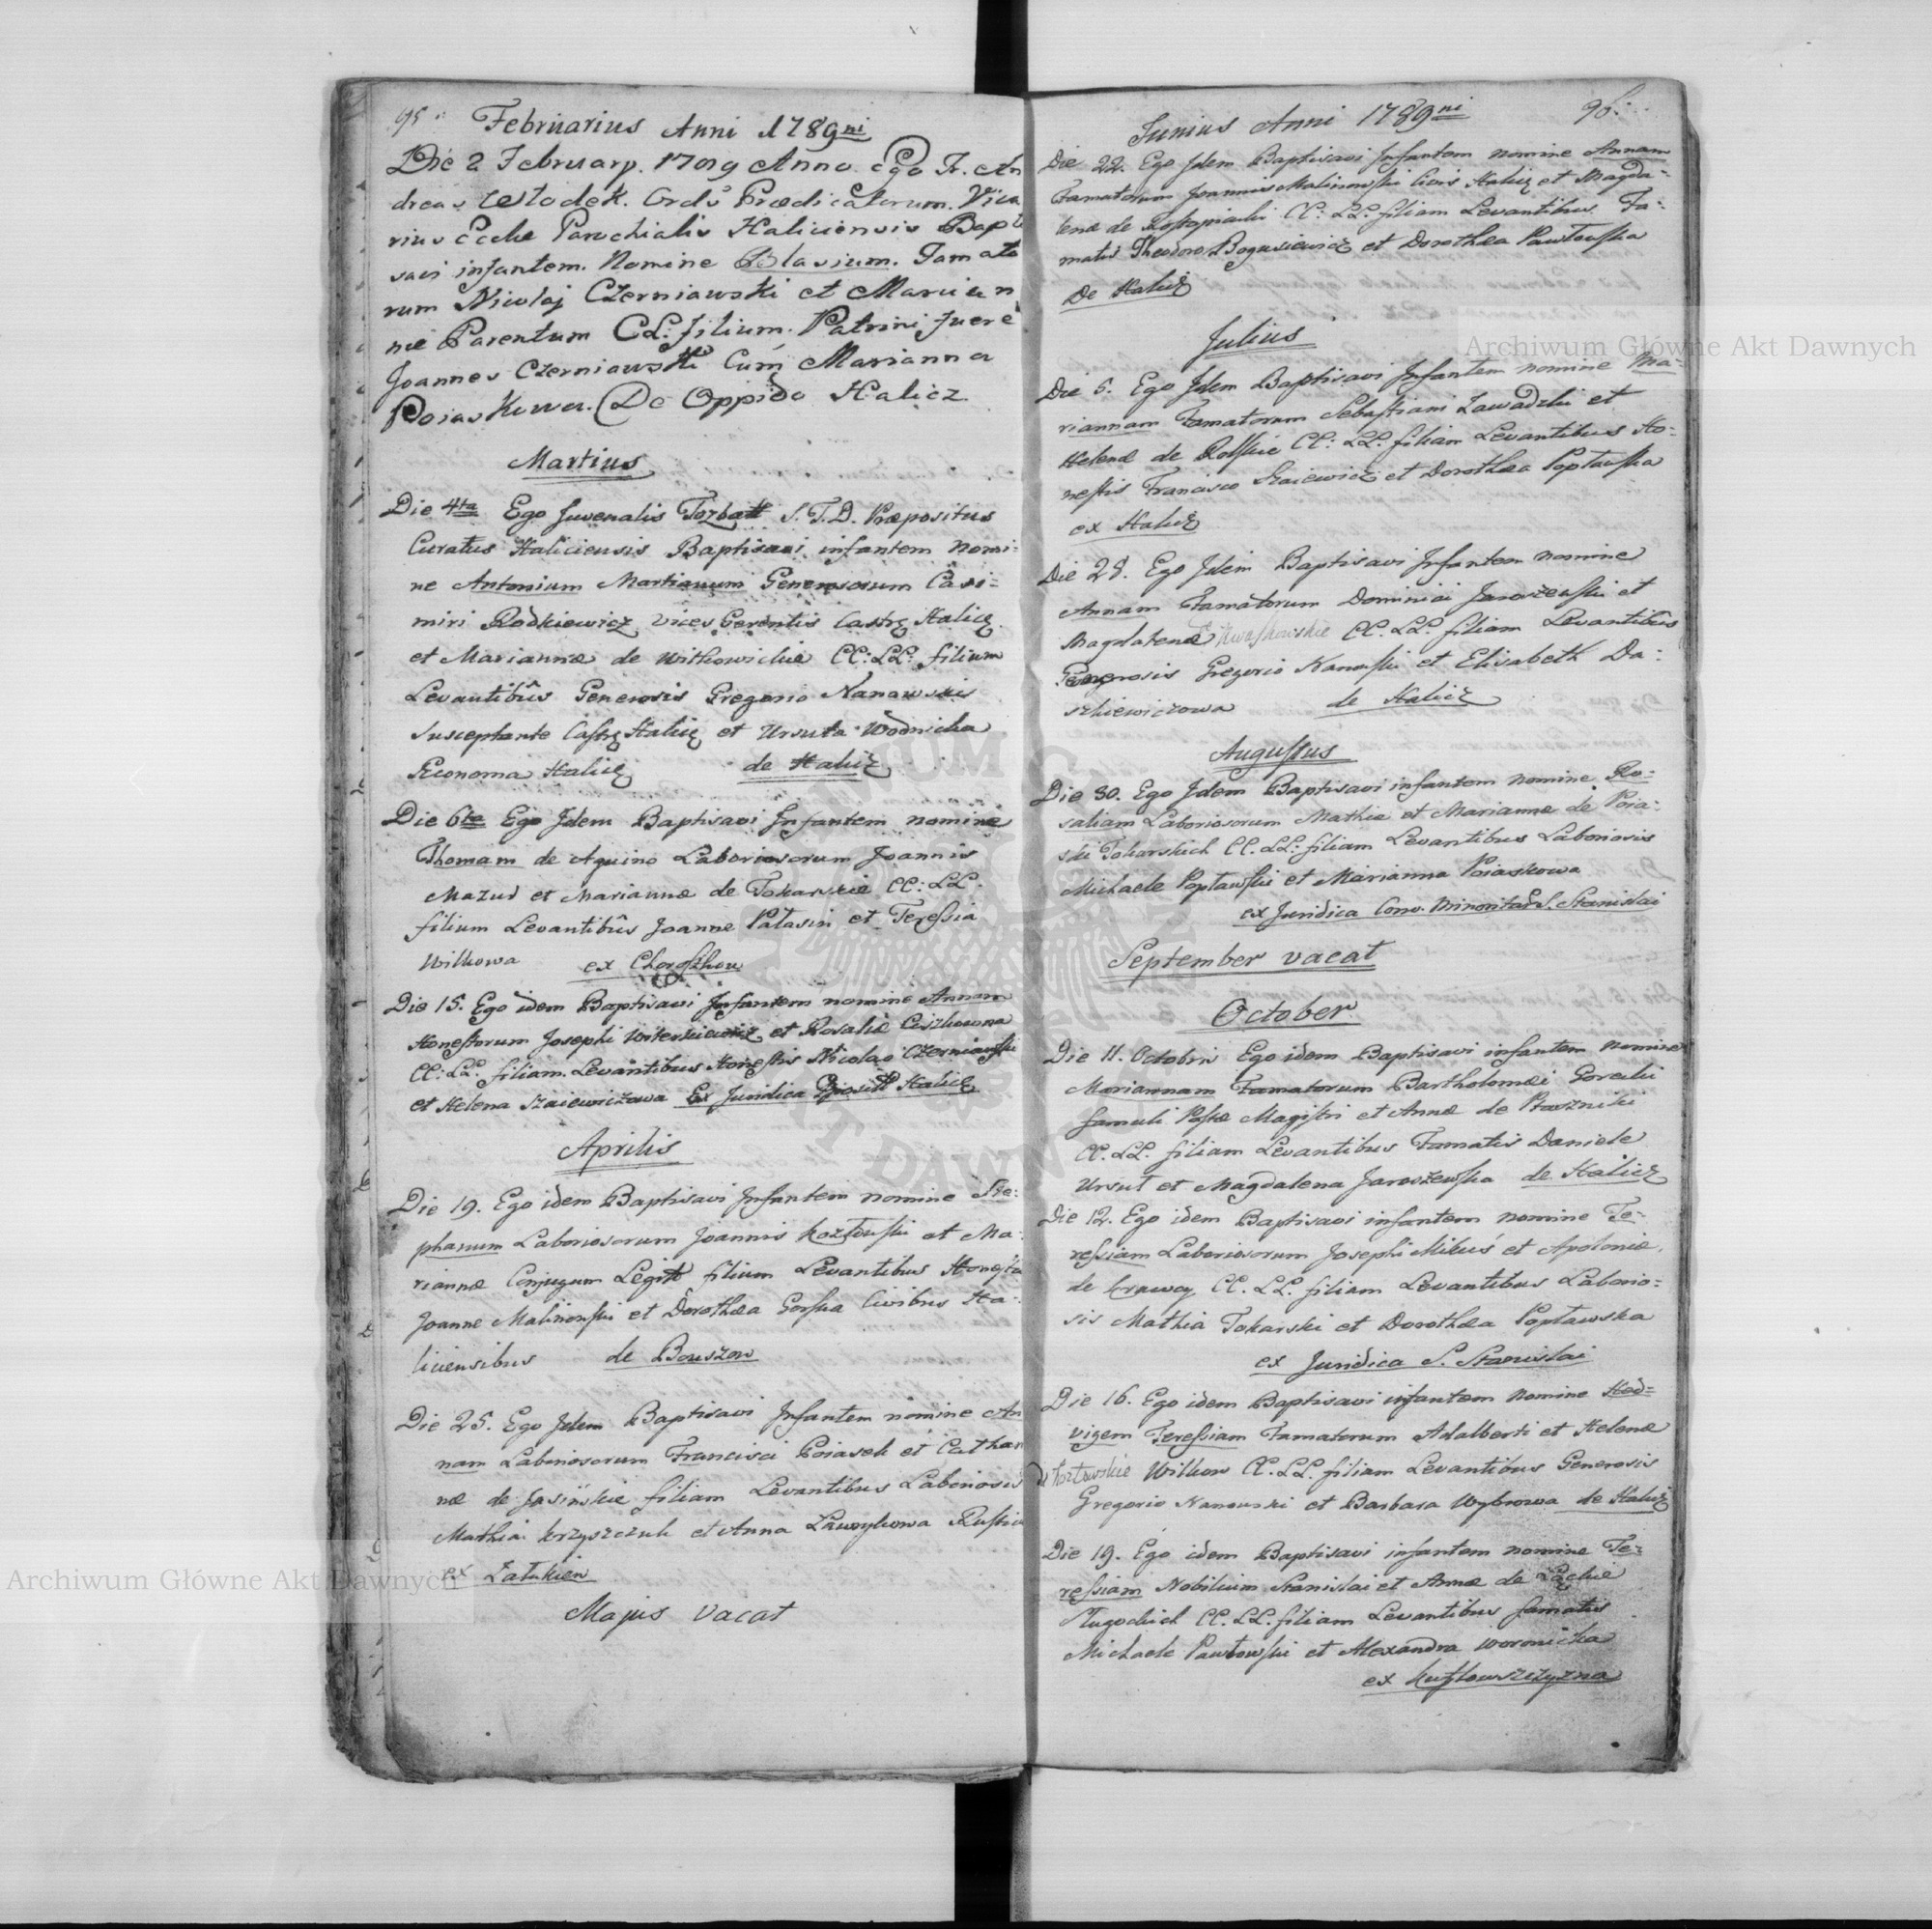 95.
Februarius Anni 1789ni
Die 2 February. 1789 Anno. Ego Fr. An
dreas Wlodek. Ords Prædicatorum. Vica
rius Eccle Parochialis Haliciensis Bapti
savi infantem. Nomine Blasium. Famato
rum Nicolaj Czerniawski et Marian
næ Parentum CL: filium. Patrini fuere
Joannes Czerniawski Cum Marianna
Poiaskowa. De Oppido Halicz
Martius
Die 4ta Ego Juvenalis S.T.D. Præpositus
Curatus Haliciensis Baptisavi infantem nomi=
ne Antonium Martianum Generosorum Casi=
miri Rodkiewicz vices Gerentis Castr Halic
et Mariannæ de Witkowickie CC: LL: filium
Levantibûs Generosis Gregorio Nanowskis
Susceptante Castr Halic et Ursula Wodnicka
Æconoma Halic de Halicz
Die 6ta Ego Jdem Baptisavi Infantem nomine
Thomam de Aquino Laboriosorum Joannis
Mazur et Mariannæ de Tokarskie CC: LL.
filium Levantibûs Joanne Patasin et Teressia
Wilkowa ex Chorostkow
Die 15. Ego idem Baptisavi Infantem nomine Annam
Honestorum Josephi et Rosaliæ Ciszkowna
CC: LL: filiam Levantibus Honestis Nicolao Czerniawski
et Helena Szaiewiczowa Ex Juridica Halic
Aprilis
Die 19. Ego idem Baptisavi Infantem nomine Ste:
phanum Laboriosorum Joannis Kozlowski et Ma:
riannæ Conjugum Legitt filium Levantibus Honesta
Joanne Malinowski et Dorothea Gorska Civibus Ha:
liciensibus de Bouszow
Die 25. Ego Jdem Baptisavi Infantem nomine An
nam Laboriosorum Francisci Poiasek et Cathari
næ de Jasińskie filiam Levantibus Laboriosis
Mathia Krzyszczuk et Anna Ławrykowa Rustica
ex Załukiew
Majus vacat
96.
Junius Anni 1789ni
Die 22. Ego Jdem Baptisavi Infantem nomine Annam
Famatorum Joannis Malinowski Civis Halic et Magda=
lenæ de CC: LL. filiam Levantibus Fa:
matis Theodoro Bogusiewicz et Dorothea Pawłowska
De Halicz
Julius
Die 5. Ego Jdem Baptisavi Infantem nomine Ma=
riannam Famatorum Sebastiani Zawadzki et
Helenæ de Rolskie CC: LL. filiam Levantibus Ho=
nestis Francisco Szaiewicz et Dorothea Popławska
ex Halicz
Die 28. Ego Jdem Baptisavi Infantem nomine
Annam Famatorum Dominici Jaroszewski et
Magdalenæ Kwaskowskie CC. LL. filiam Levantibûs
Generosis Gregorio Nanowski et Elisabeth Da=
szkiewiczowa de Halicz
Augustus
Die 30. Ego Jdem Baptisavi infantem nomine Ro=
saliam Laboriosorum Mathiæ et Mariannæ de Poia=
ski Tokarskich CC. LL: filiam Levantibus Laboriosis
Michaele Popławski et Marianna Poiaskowa
ex Juridica Conv. Minoritar S. Stanislai
September vacat
October
Die 11. Octobris Ego idem Baptisavi infantem nomine
Mariannam Famatorum Bartholomæi Gorecki
famuli Postæ Magistri et Annæ de
CC. LL. filiam Levantibus Famatis Daniele
Ursul et Magdalena Jaroszewska de Halicz
Die 12. Ego idem Baptisavi infantem nomine Te=
ressiam Laboriosorum Josephi Mikuś et Apoloniæ
de Krawcy CC. LL. filiam Levantibus Laborio=
sis Mathia Tokarski et Dorothea Popławska
ex Juridica S. Stanislai
Die 16. Ego idem Baptisavi infantem nomine Hed=
vigem Teressiam Famatorum Adalberti et Helenæ
de Kozłowskie Wilkow CC. LL. filiam Levantibus Generosis
Gregorio Nanowski et Barbara Wybrowa de Halicz
Die 19. Ego idem Baptisavi infantem nomine Te=
ressiam Nobilium Stanislai et Annæ de Łąckie
Długockich CC. LL. filiam Levantibus famatis
Michaele Pawłowski et Alexandra Woronicka
ex
Archiwum Główne Akt Dawnych
Archiwum Główne Akt Dawnych